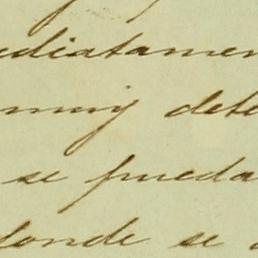 ediatamen
muy dete
se pueda
donde se